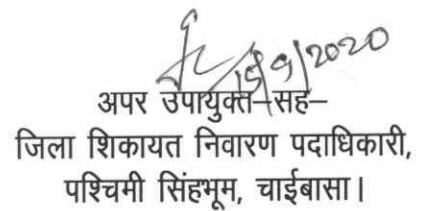 15/9/2020
अपर उपायुक्त-सह-
जिला शिकायत निवारण पदाधिकारी,
पश्चिमी सिंहभूम, चाईबासा।